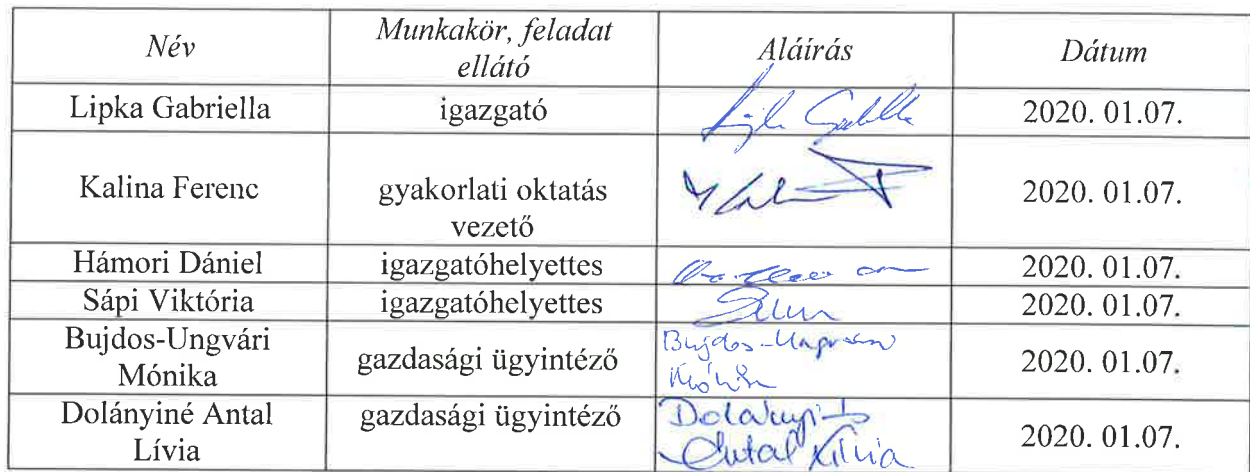 Név Munkakör, feladat ellátó Aláírás Dátum
Lipka Gabriella igazgató 2020. 01.07.
Kalina Ferenc gyakorlati oktatás vezető 2020. 01.07.
Hámori Dániel igazgatóhelyettes 2020. 01.07.
Sápi Viktória igazgatóhelyettes 2020. 01.07.
Bujdos-Ungvári Mónika gazdasági ügyintéző 2020. 01.07.
Dolányiné Antal Lívia gazdasági ügyintéző Antal Lívia 2020. 01.07.